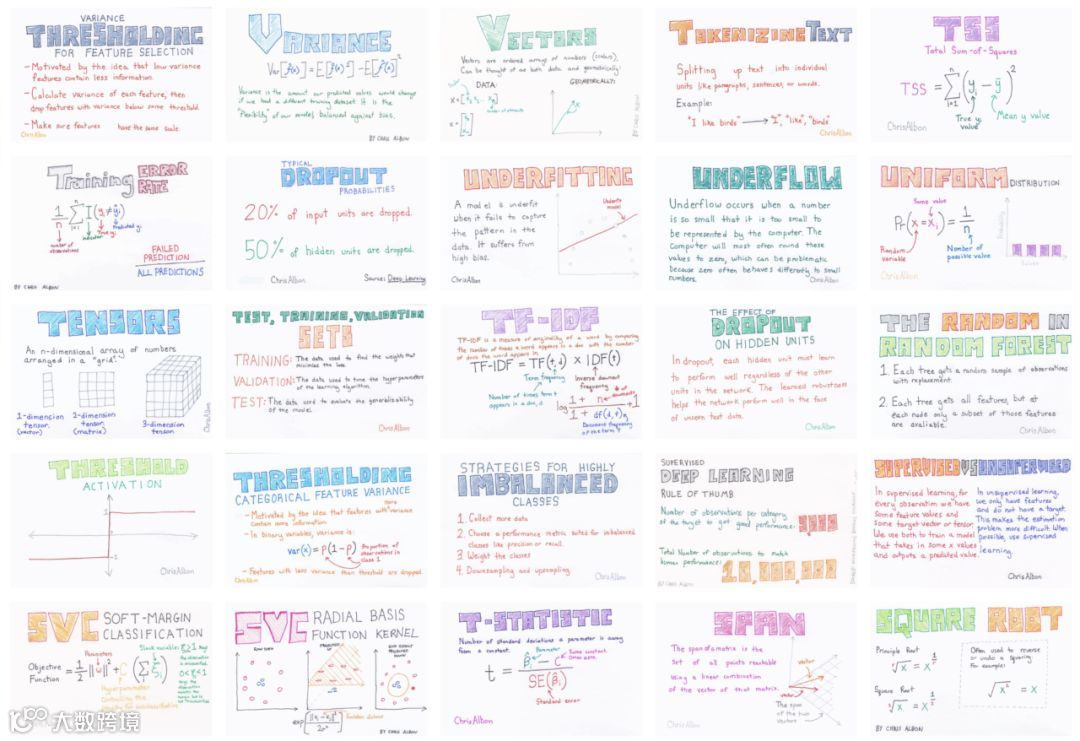 VARIANCE
THRESHOLDING
FOR FEATURE SELECTION
- Motivated by the idea that low variance
features contain less information.
- Calculate variance of each feature, then
drop features with variance below some threshold.
- Make sure features have the same scale.
ChrisAlbon
VARIANCE
Var[f̂(x)] = E[f̂(x)²] - E[f̂(x)]²
Variance is the amount our predicted values would change
if we had a different training dataset. It is the
"flexibility" of our model, balanced against bias.
BY CHRIS ALBON
VECTORS
Vectors are ordered arrays of numbers (scalars).
Can be thought of as both data and geometrically
DATA:
GEOMETRICALLY:
TOKENIZING TEXT
Splitting up text into individual
units like paragraphs, sentences, or words.
Example:
"I like birds" → "I", "like", "birds"
ChrisAlbon
TSS
Total Sum-of-Squares
TSS = Σ(yᵢ - ȳ)²
n
i=1
True y value
Mean y value
ChrisAlbon
Training ERROR
RATE
1/n Σ I(yᵢ ≠ ŷᵢ)
number of
observations
indicator
True yᵢ
Predicted yᵢ
FAILED
PREDICTION
ALL PREDICTIONS
BY CHRIS ALBON
TYPICAL
DROPOUT
PROBABILITIES
20% of input units are dropped.
50% of hidden units are dropped.
ChrisAlbon
Source: Deep Learning
UNDERFITTING
A model is underfit
when it fails to capture
the pattern in the
data. It suffers from
high bias.
Underfit
model
ChrisAlbon
UNDERFLOW
Underflow occurs when a number
is so small that it is too small to
be represented by the computer. The
Computer will most often round these
values to zero, which can be problematic
because zero often behaves differently to small
numbers.
ChrisAlbon
UNIFORM DISTRIBUTION
Some value
Pr(x = xᵢ) = 1/n
Random
variable
Number of
possible value
Probability
Values
ChrisAlbon
TENSORS
An n-dimensional array of numbers
arranged in a "grid"
1-dimension
tensor
(vector)
2-dimension
tensor
(matrix)
3-dimension
tensor
ChrisAlbon
TEST, TRAINING, VALIDATION
SETS
TRAINING: The data used to find the weights that
minimizes the loss
VALIDATION: The data used to tune the hyperparameters
of the learning algorithm.
TEST: The data used to evaluate the generalizability
of the model.
ChrisAlbon
TF-IDF
TF-IDF is a measure of originality of a word by comparing
the number of times a word appears in a doc with the number
of docs the word appears in.
TF-IDF = TF(t,d) × IDF(t)
Term frequency
Inverse document
frequency
Number of times term t
appears in a doc, d
# of
documents
log (1 + n)/(1 + df(d,t)) + 1
Document frequency
of the term t
ChrisAlbon
THE EFFECT OF
DROPOUT
ON HIDDEN UNITS
In dropout, each hidden unit must learn
to perform well regardless of the other
units in the network. The learned robustness
helps the network perform well in the face
of unseen test data.
ChrisAlbon
THE RANDOM IN
RANDOM FOREST
1. Each tree gets a random sample of observations
with replacement.
2. Each tree gets all features, but at
each node only a subset of those features
are avaliable.
ChrisAlbon
THRESHOLD
ACTIVATION
1
ChrisAlbon
THRESHOLDING
CATEGORICAL FEATURE VARIANCE
- Motivated by the idea that features with more variance
contain more information
- In binary variables, variance is:
var(x) = p(1-p)
Proportion of
observations in
class 1
- Features with less variance than threshold are dropped.
ChrisAlbon
STRATEGIES FOR HIGHLY
IMBALANCED
CLASSES
1. Collect more data
2. Choose a performance metric suited for imbalanced
classes like precision or recall.
3. Weight the classes
4. Downsampling and upsampling.
ChrisAlbon
SUPERVISED
DEEP LEARNING
RULE OF THUMB
Number of observations per category
of the target to get good performance:
5000
Total Number of observations to match
human performance:
10,000,000
BY CHRIS ALBON
SUPERVISED VS UNSUPERVISED
In supervised learning, for
every observation we have
some feature values and
some target vector or tensor.
We use both to train a model
that takes in some x values
and outputs a predicted value.
In unsupervised learning,
we only have features
and do not have a target.
This makes the estimation
problem more difficult. When
possible, use supervised
learning.
ChrisAlbon
SVC SOFT-MARGIN
CLASSIFICATION
Parameters
Objective
Function
Hyperparameter
SVC RADIAL BASIS
FUNCTION KERNEL
BY CHRIS ALBON
T-STATISTIC
Number of standard deviations a parameter is away
from a constant.
Parameter
Some constant
Often zero
t = (β̂ᵢ - C)/SE(β̂ᵢ)
Standard error
ChrisAlbon
SPAN
The span of a matrix is the
set of all points reachable
using a linear combination
of the vector of that matrix.
vector
vector
The span
of the two
vectors
ChrisAlbon
SQUARE ROOT
Principle Root
Square Root
Often used to reverse
or undo a squaring
for example:
√x² = x
BY CHRIS ALBON
大数跨境